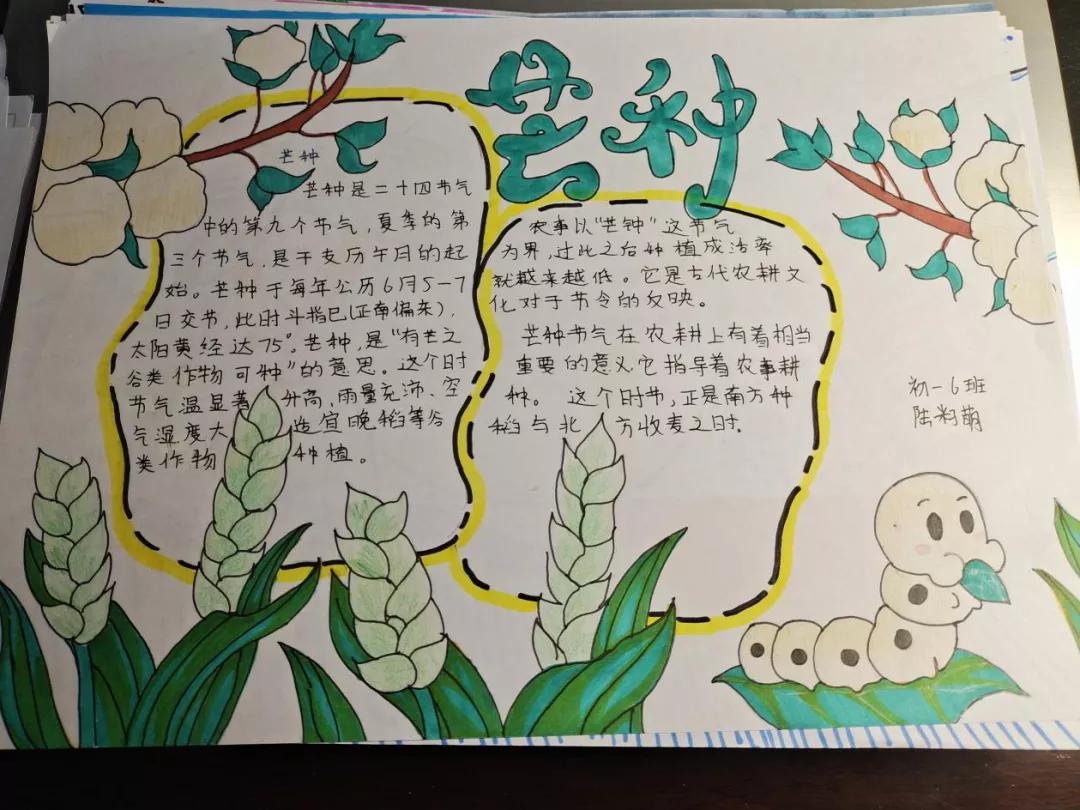 芒种
芒种
芒种是二十四节气
中的第九个节气，夏季的第
三个节气，是干支历午月的起
始。芒种于每年公历6月5-7
日交节，此时斗指巳(正南偏东)，
太阳黄经达75°。芒种，是“有芒之
谷类作物可种”的意思。这个时
节气温显著升高，雨量充沛、空
气湿度大 适宜晚稻等谷
类作物种植。
农事以“芒钟”这节气
为界，过此之后种植成活率
就越来越低。它是古代农耕文
化对于节令的反映。
芒种节气在农耕上有着相当
重要的意义它指导着农事耕
种。这个时节，正是南方种
稻与北方收麦之时.
初一6班
陆 萌